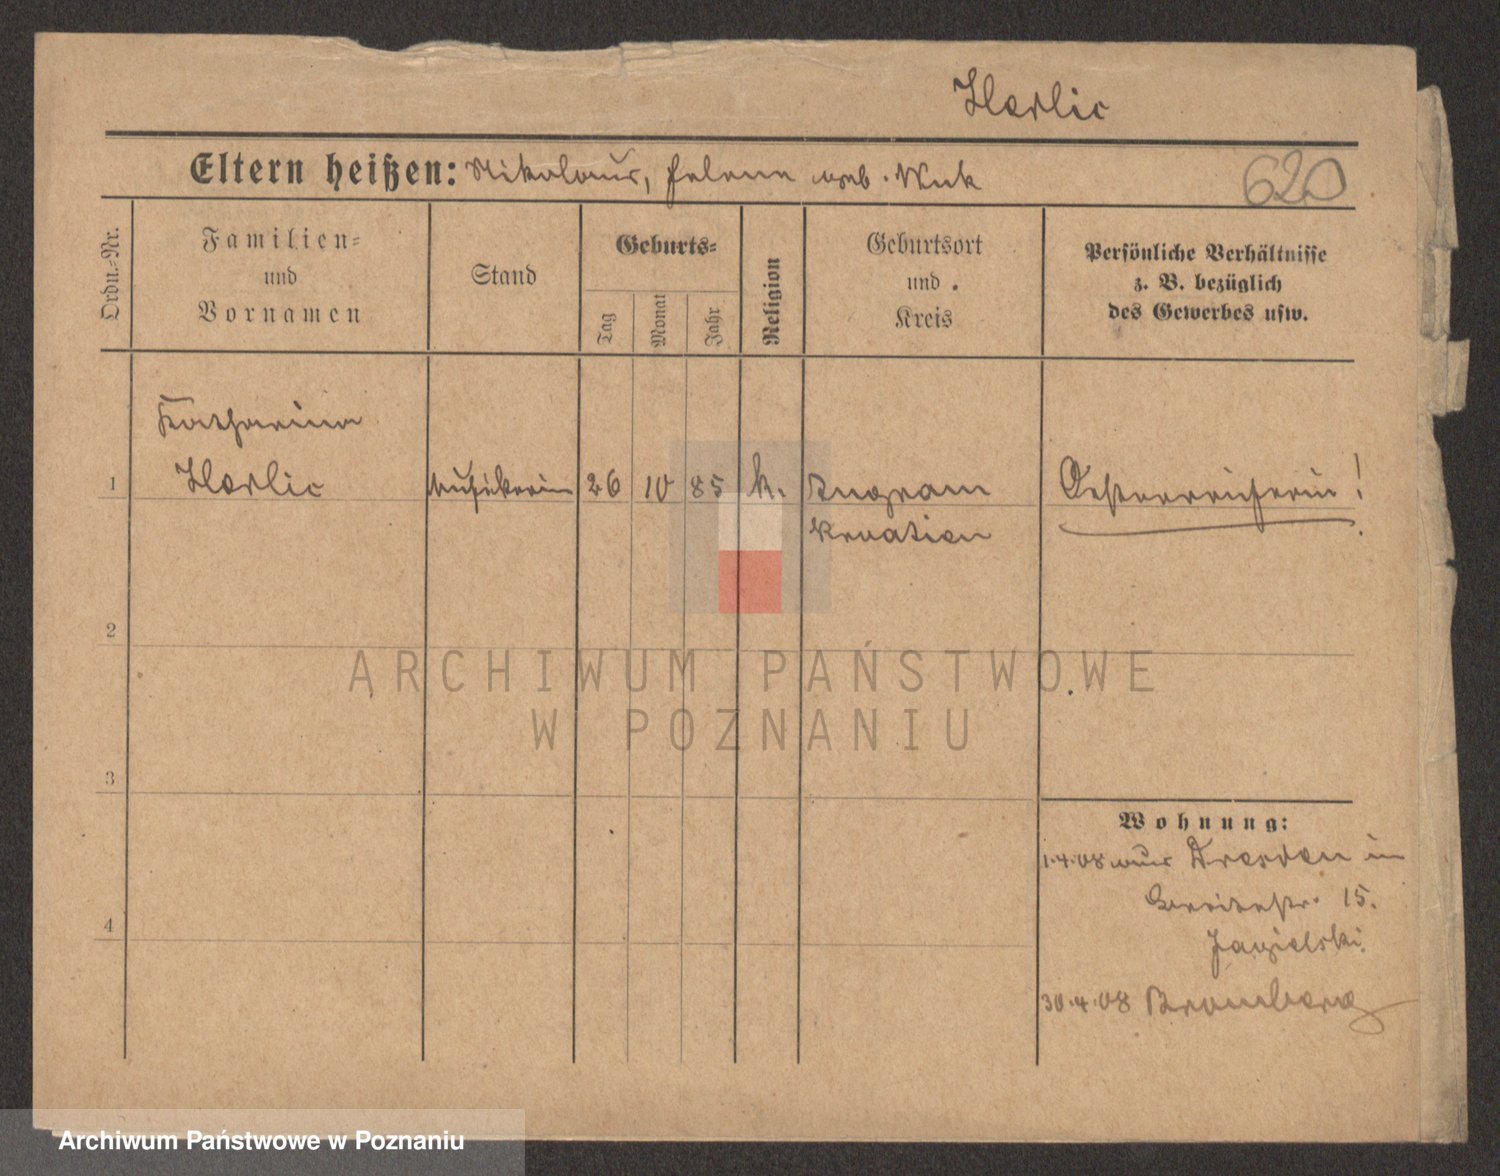 Harlic
Eltern heißen: Nikolaus, Helene geb. Wuk
620
Ordn.-Nr.
Familien=
und
Vornamen
Stand
Geburts=
Tag
Monat
Jahr
Religion
Geburtsort
und
Kreis
Persönliche Verhältnisse
z. B. bezüglich
des Gewerbes usw.
Katharina
1 Harlic Musikerin 26 10 85 k. Oesterreicherin!
Kroatien
2
ARCHIWUM PAŃSTWOWE
W POZNANIU
3
Wohnung:
1.4.08 aus Dresden in
Breitestr. 15.
Jagielski.
4
30.4.08 Bromberg
Archiwum Państwowe w Poznaniu